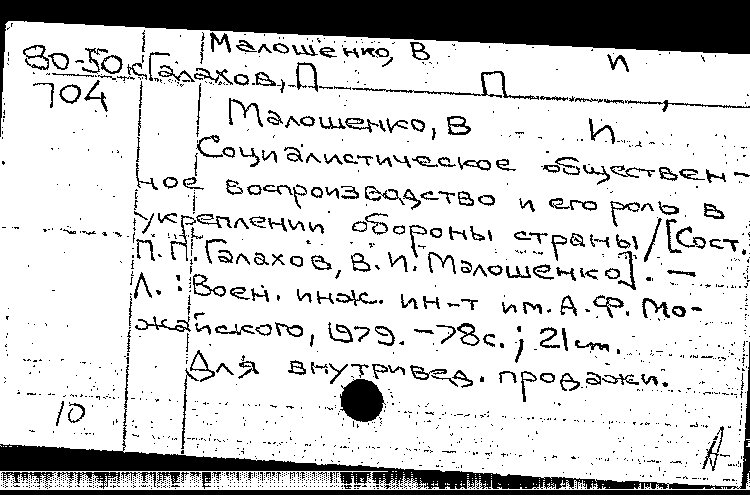 Малошенко, В И
80-50к Галахов, П П,
704
Малошенко, В И
Социалистическое обществен-
ное воспроизводство и его роль в
укреплении обороны страны / [Сост.
П. П. Галахов, В. И. Малошенко]. —
Л. : Воен. инж. ин-т им. А. Ф. Мо-
жайского, 1979. - 78 с. ; 21 см.
Для внутривед. продажи.
10
А